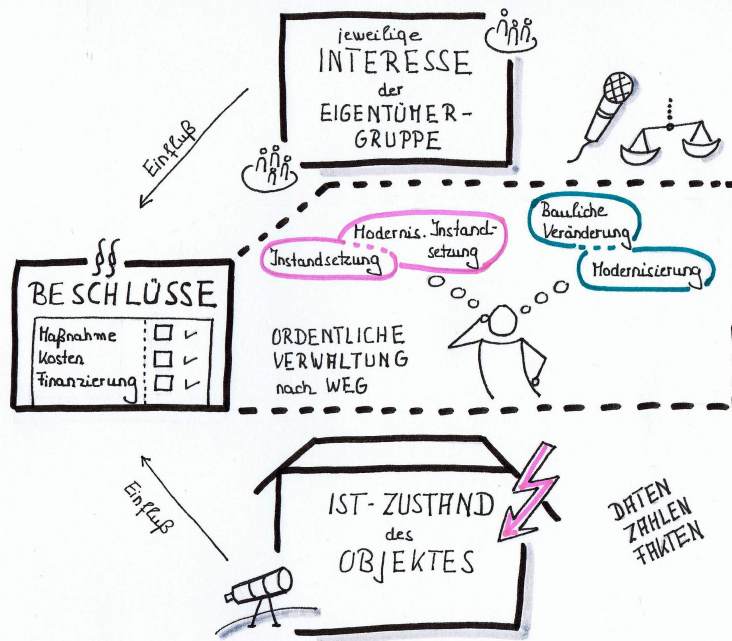 jeweilige
INTERESSE
der
EIGENTÜMER-
GRUPPE
Einfluß
Instandsetzung
Modernis. Instand-
setzung
Bauliche
Veränderung
Modernisierung
§§
BESCHLÜSSE
Maßnahme
Kosten
Finanzierung
ORDENTLICHE
VERWALTUNG
nach WEG
Einfluß
IST-ZUSTAND
des
OBJEKTES
DATEN
ZAHLEN
FAKTEN